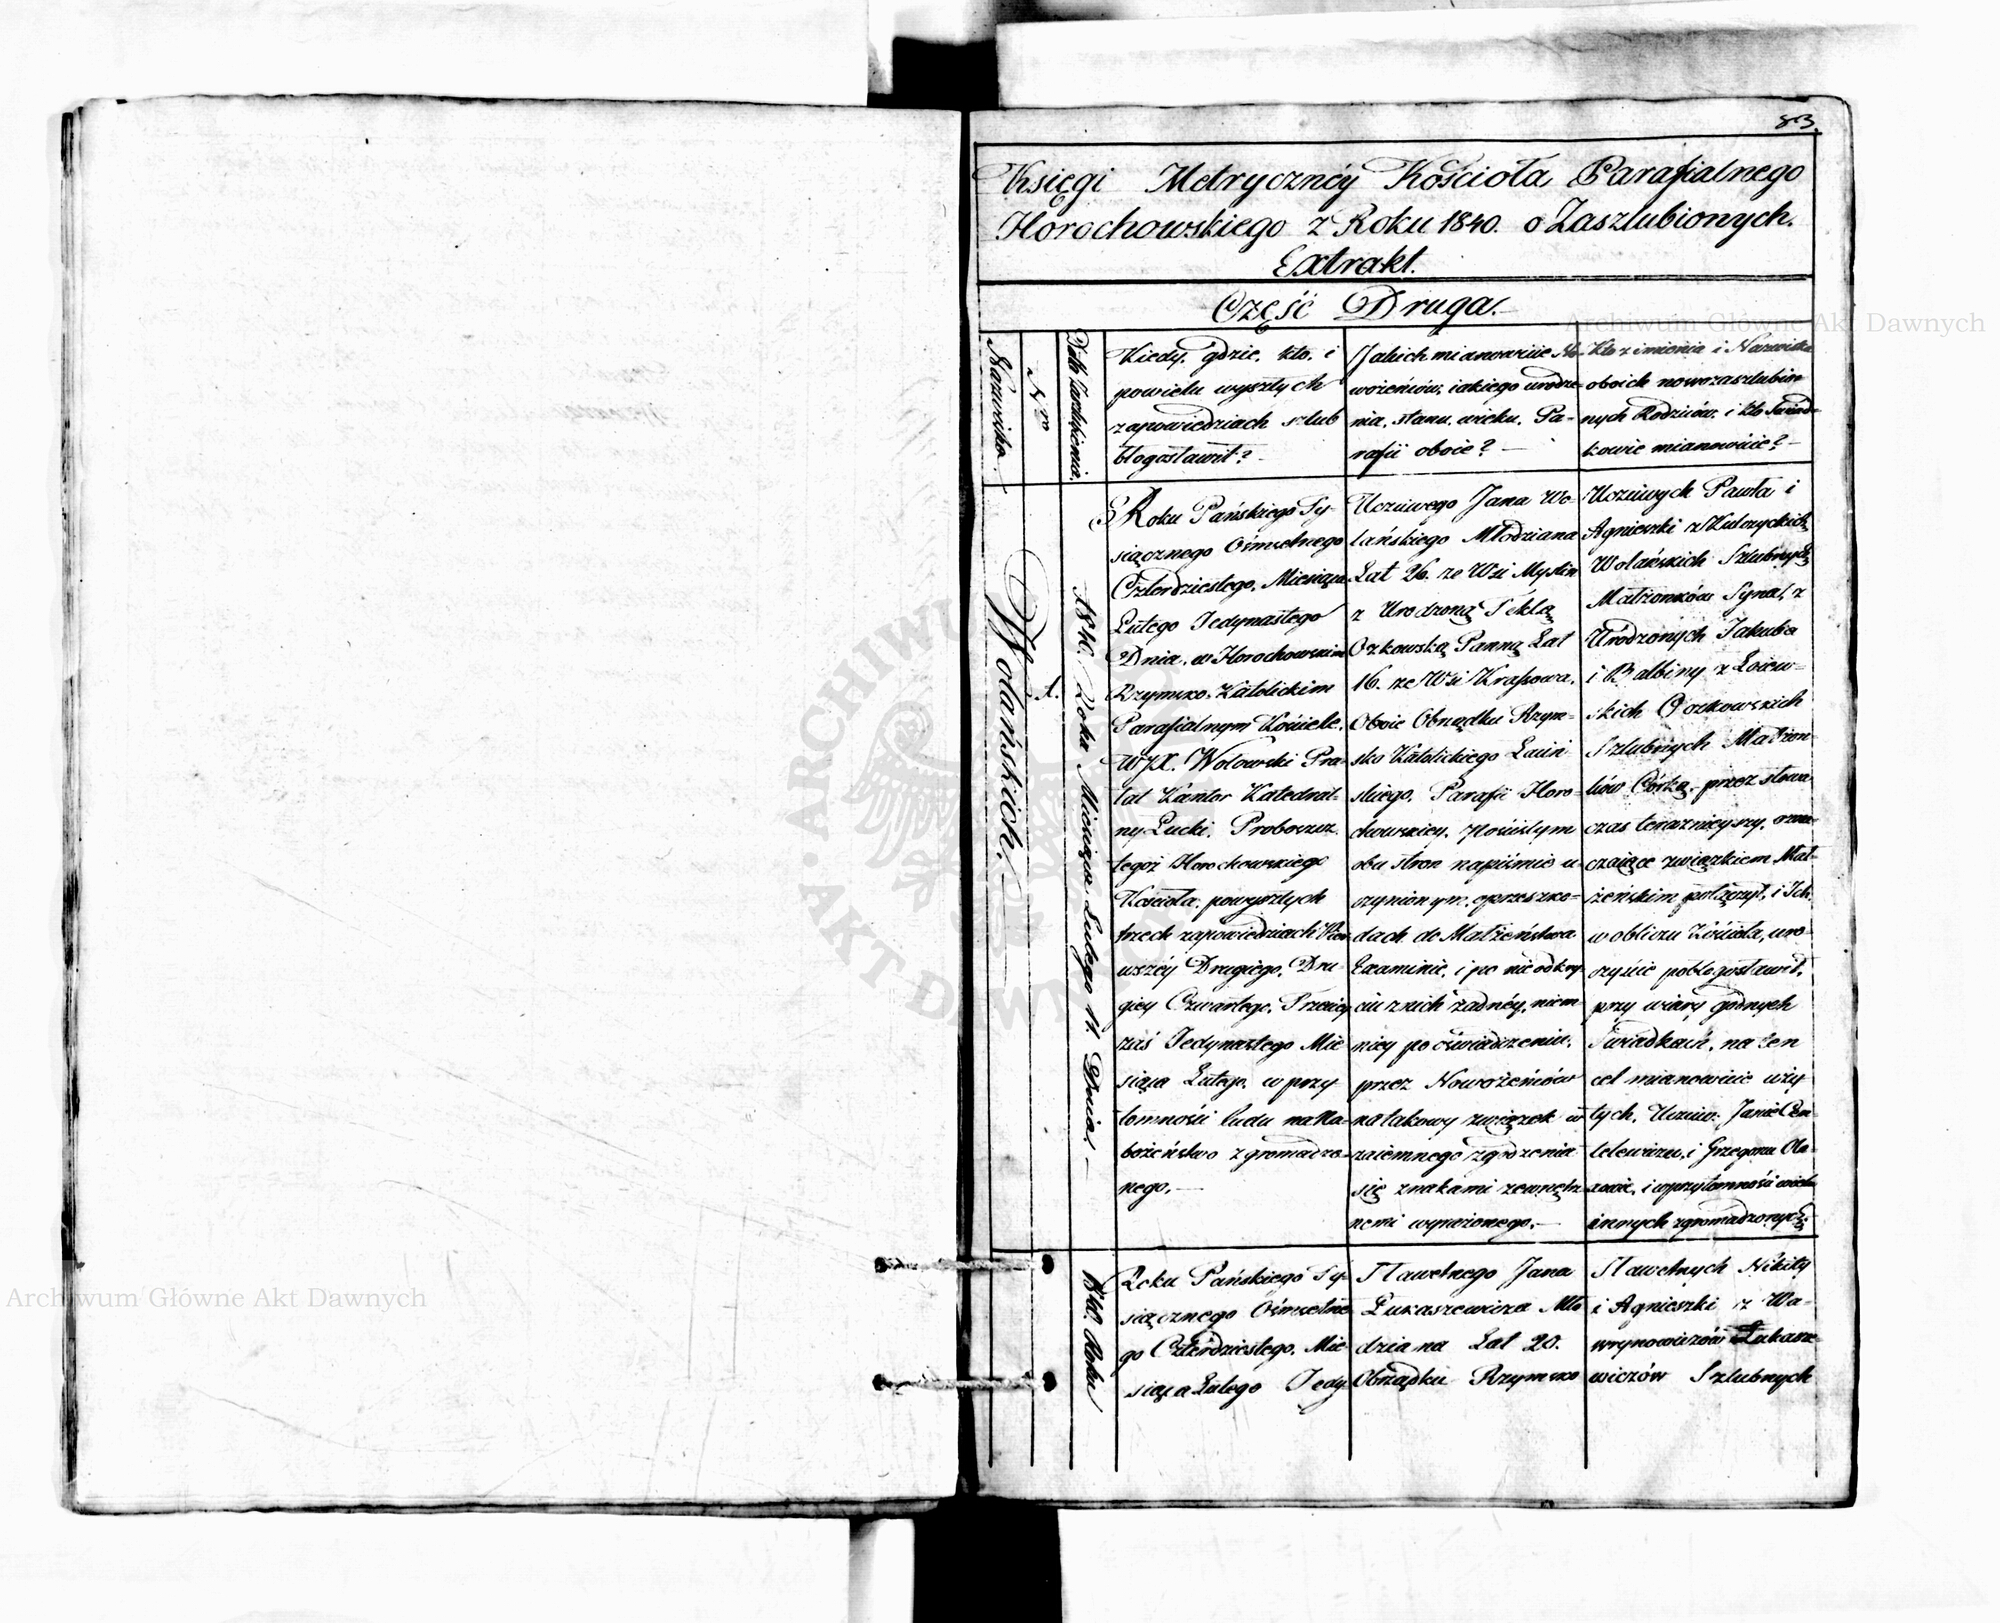 83.
Księgi Metrycznéy Kościoła Parafialnego
Horochowskiego z Roku 1840. o Zaszlubionych.
Extrakt.
Część Druga.
Nazwisko
Nro
Data Zaszlubienia.
Kiedy, gdzie, kto, i
powielu wyszłych
zapowiedziach szlub
błogosławił?
Jakich mianowicie No-
wożeńców, iakiego urodze-
nia, stanu, wieku, Pa-
rafii oboie?
Kto z imienia i Nazwiska
oboich nowozaszlubio-
nych Rodziców, i kto Świad-
kowie mianowicie?
Wolańskich.
1.
1840. Roku Miesiąca Lutego 11. Dnia.
Roku Pańskiego Ty-
siącznego Ośmsetnego
Czterdziestego, Miesiąca
Lutego Jedynastego
Dnia, w Horochowskim
Rzymsko-Katolickim
Parafialnym Kościele,
WJX. Wołowski Pra-
łat Kantor Katedral-
ny Łucki, Proboszcz
tegoż Horochowskiego
Kościoła, powyszłych
trzech zapowiedziach Pier-
wszéy Drugiego, Dru-
giey Czwartego, Trzeciey
zaś Jedynastego Mie-
siąca Lutego, w przy-
tomności ludu na Na-
bożeństwo zgromadzo-
nego.
Uczciwego Jana Wo-
lańskiego Młodziana
Lat 26. ze Wsi Myslin
z Urodzoną Teklą
Ozkowską Panną Lat
16. ze Wsi Krasowa,
Oboie Obrządku Rzym-
sko Katolickiego Łaciń
skiego, Parafii Horo-
chowskiey, pościsłym
obu stron napiśmie u
czynionym, oprzeszko-
dach do Małżeństwa
Examinie, i po nieodkry-
ciu znich żadnéy, niem
niey po oświadczeniu,
przez Nowożeńców
na takowy związek w
zaiemnego zgodzenia
się znakami zewnętrz
nemi wyrażonego.
Uczciwych Pawła i
Agnieszki z Kulczyckich
Wolańskich Szlubnych
Małżonków Syna, z
Urodzonych Jakuba
i Balbiny z Łoiew-
skich Ozkowskich
Szlubnych Małżon-
ków Córką, przez słowa
czas teraznieyszy, ozna
czaiące związkiem Mał-
żeńskim połączył, i Ich
w obliczu Kościoła, uro-
czyście pobłogosławił,
przy wiary godnych
Świadkach, na ten
cel mianowicie uży
tych, Uczciw: Janie Cen
telewiczu, i Grzegorzu Ola-
, i wprzytomności wielu
innych zgromadzonych.
1840. Roku
Roku Pańskiego Ty-
siącznego Ośmsetne
go Czterdziestego, Mie-
siąca Lutego Jedy-
Sławetnego Jana
Łukaszewicza Mło
dziana Lat 20.
Obrządku Rzymsko
Sławetnych Nikity
i Agnieszki z Wa-
wrynowiczów Łukasze-
wiczów Szlubnych
Archiwum Główne Akt Dawnych
Archiwum Główne Akt Dawnych